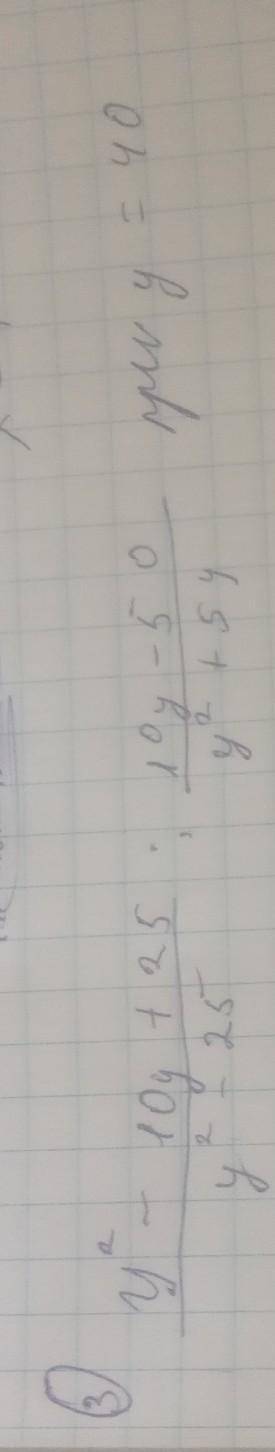 3 (y² - 10y + 25)/(y² - 25) : (10y - 50)/(y² + 5y) при y = 40